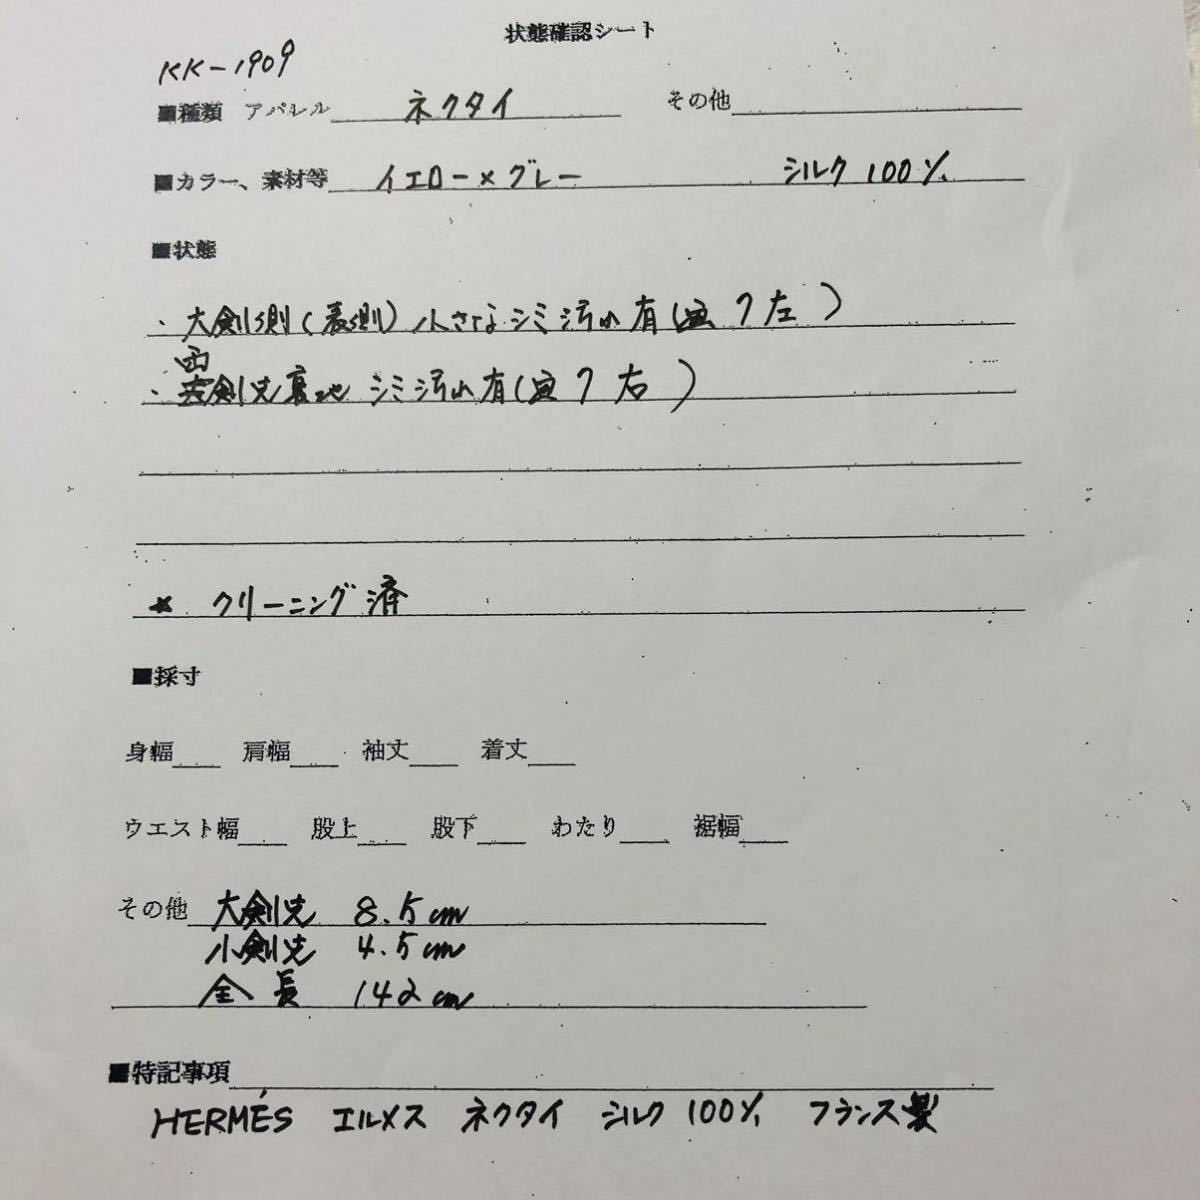 状態確認シート
KK-1909
■種類 アパレル ネクタイ その他
■カラー、素材等 イエロー×グレー シルク100%
■状態
・大剣側(表側)小さなシミ汚れ有(画7左)
・両剣先裏地シミ汚れ有(画7右)
* クリーニング済
■採寸
身幅 肩幅 袖丈 着丈
ウエスト幅 股上 股下 わたり 裾幅
その他 大剣先 8.5cm
小剣先 4.5cm
全長 142cm
■特記事項
HERMÉS エルメス ネクタイ シルク100% フランス製